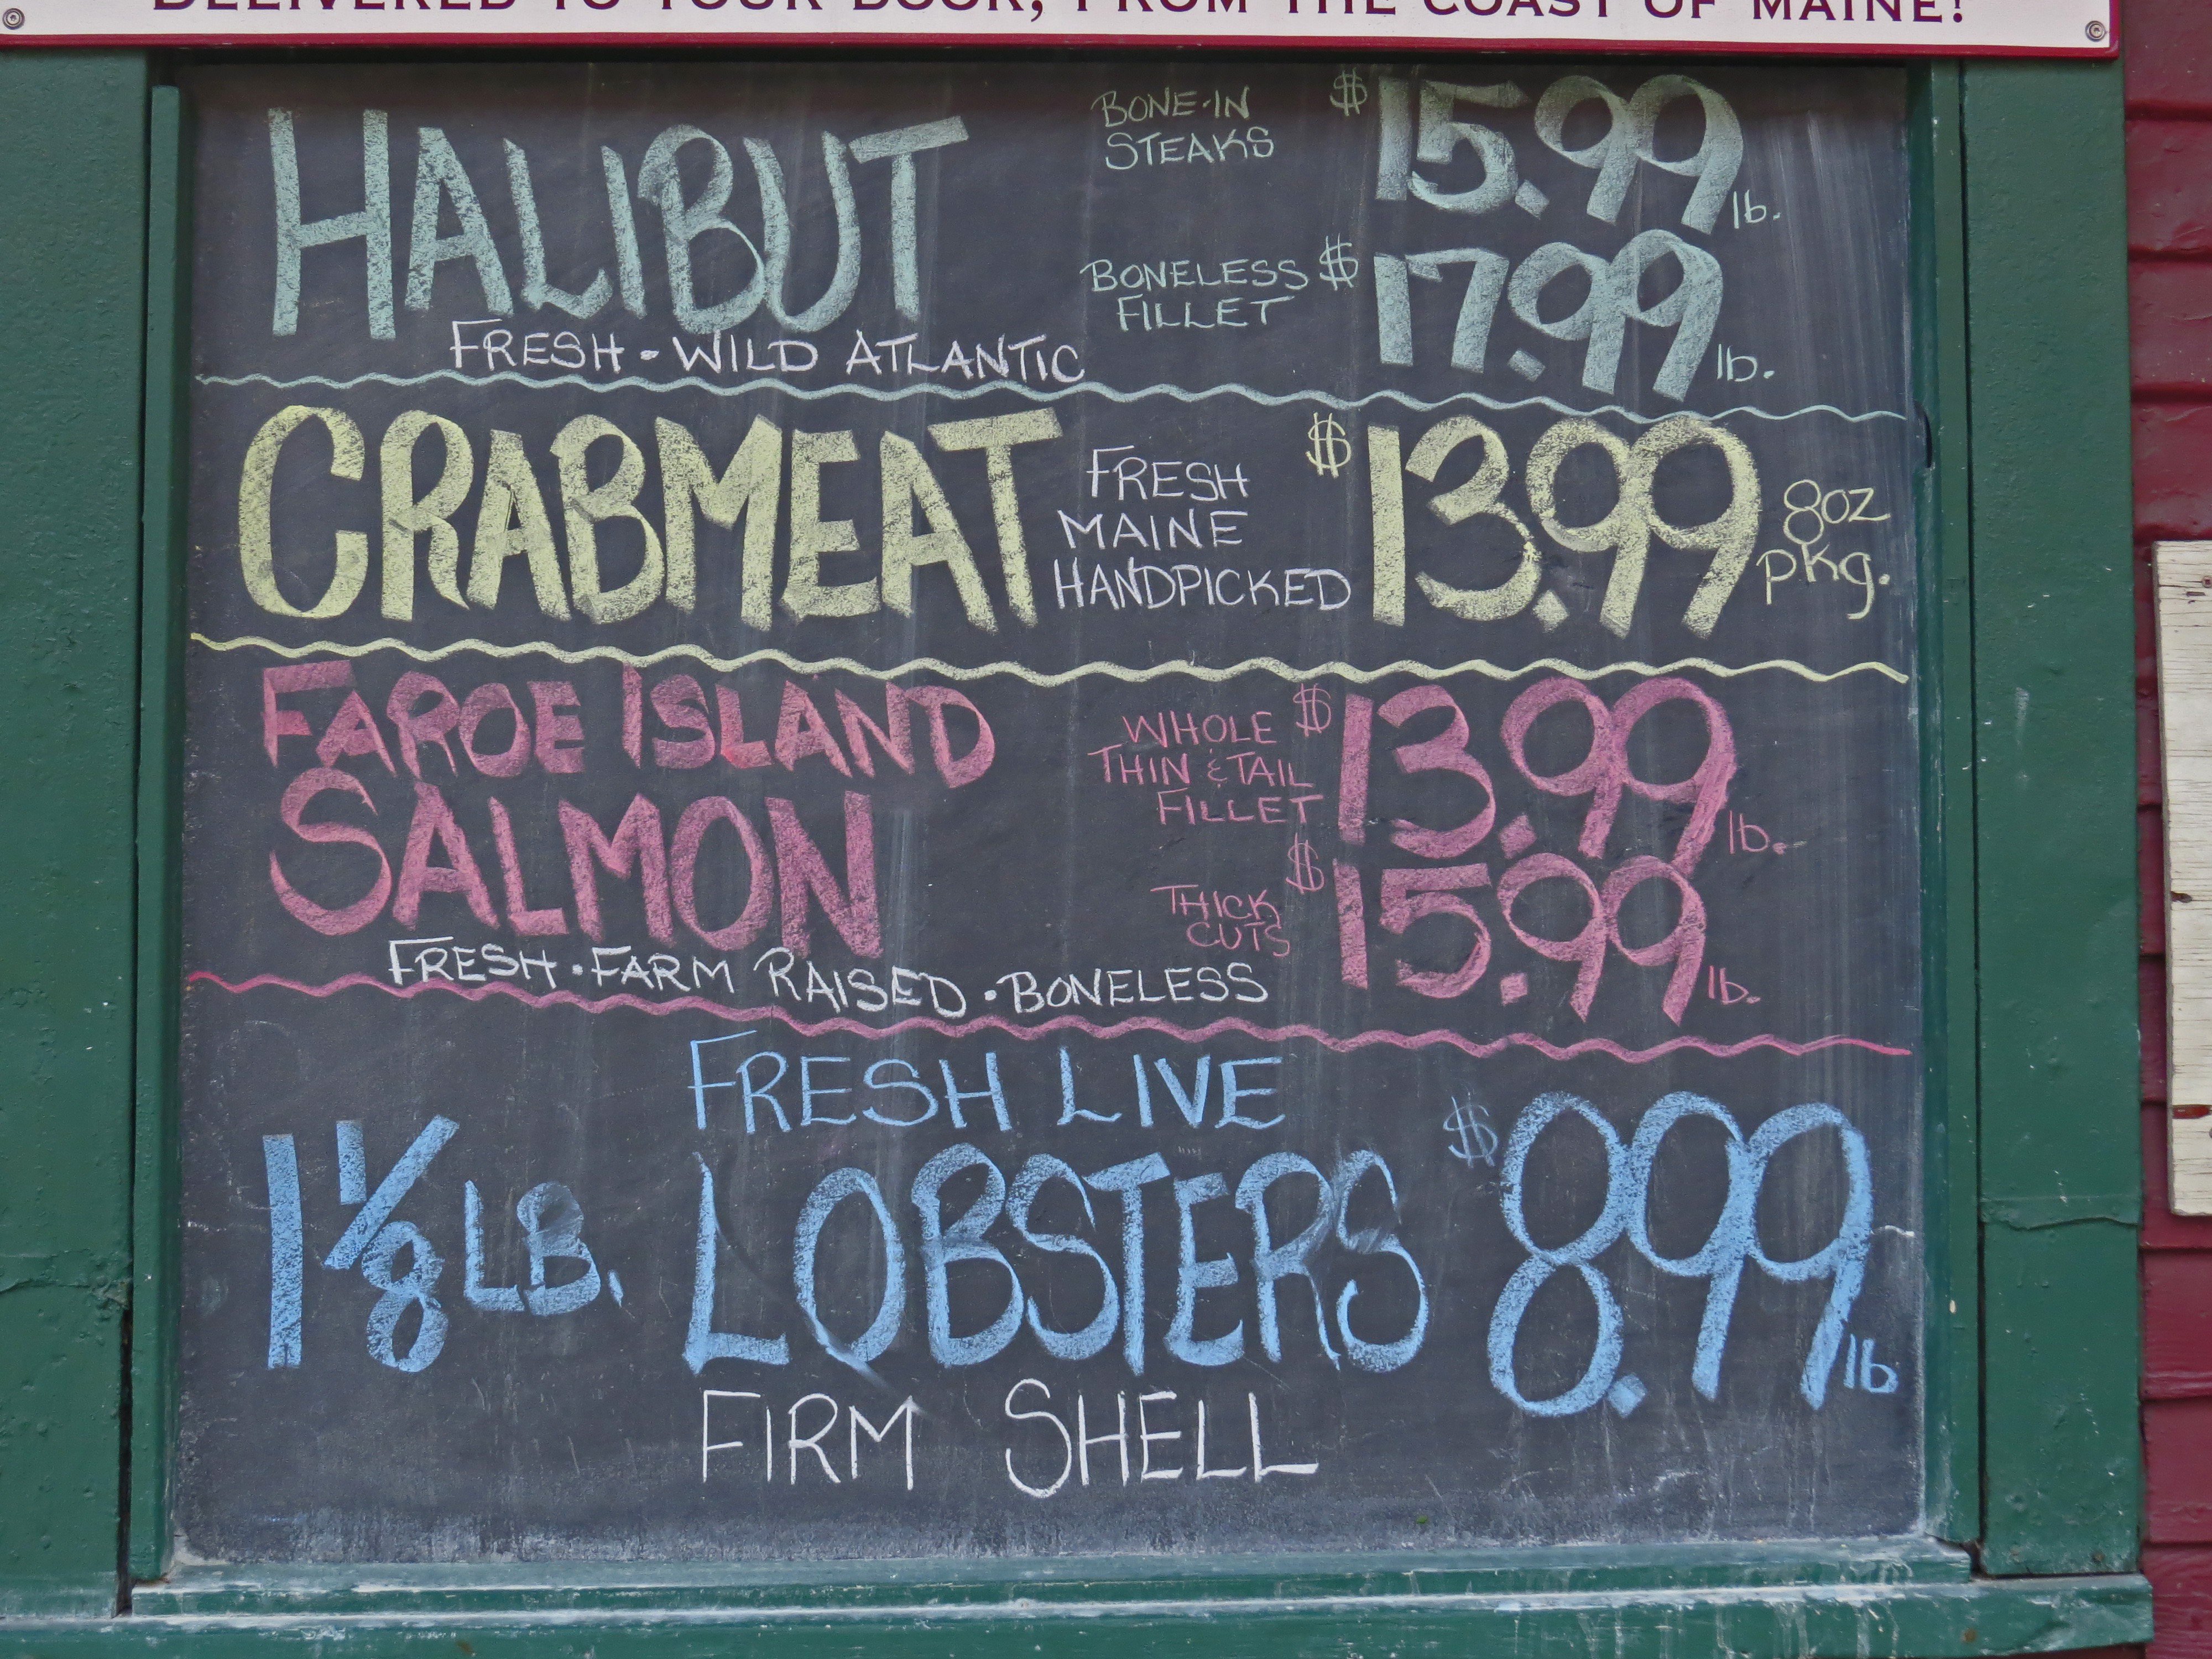 DELIVERED TO YOUR DOOR, FROM THE COAST OF MAINE!
HALIBUT
FRESH · WILD ATLANTIC
BONE-IN
STEAKS
$15.99 lb.
BONELESS
FILLET
$17.99 lb.
CRABMEAT
FRESH
MAINE
HANDPICKED
$13.99
8oz
pkg.
FAROE ISLAND
SALMON
FRESH · FARM RAISED · BONELESS
WHOLE
THIN & TAIL
FILLET
$13.99 lb.
THICK
CUTS
$15.99 lb.
FRESH LIVE
1 1/8 LB. LOBSTERS $8.99 lb
FIRM SHELL